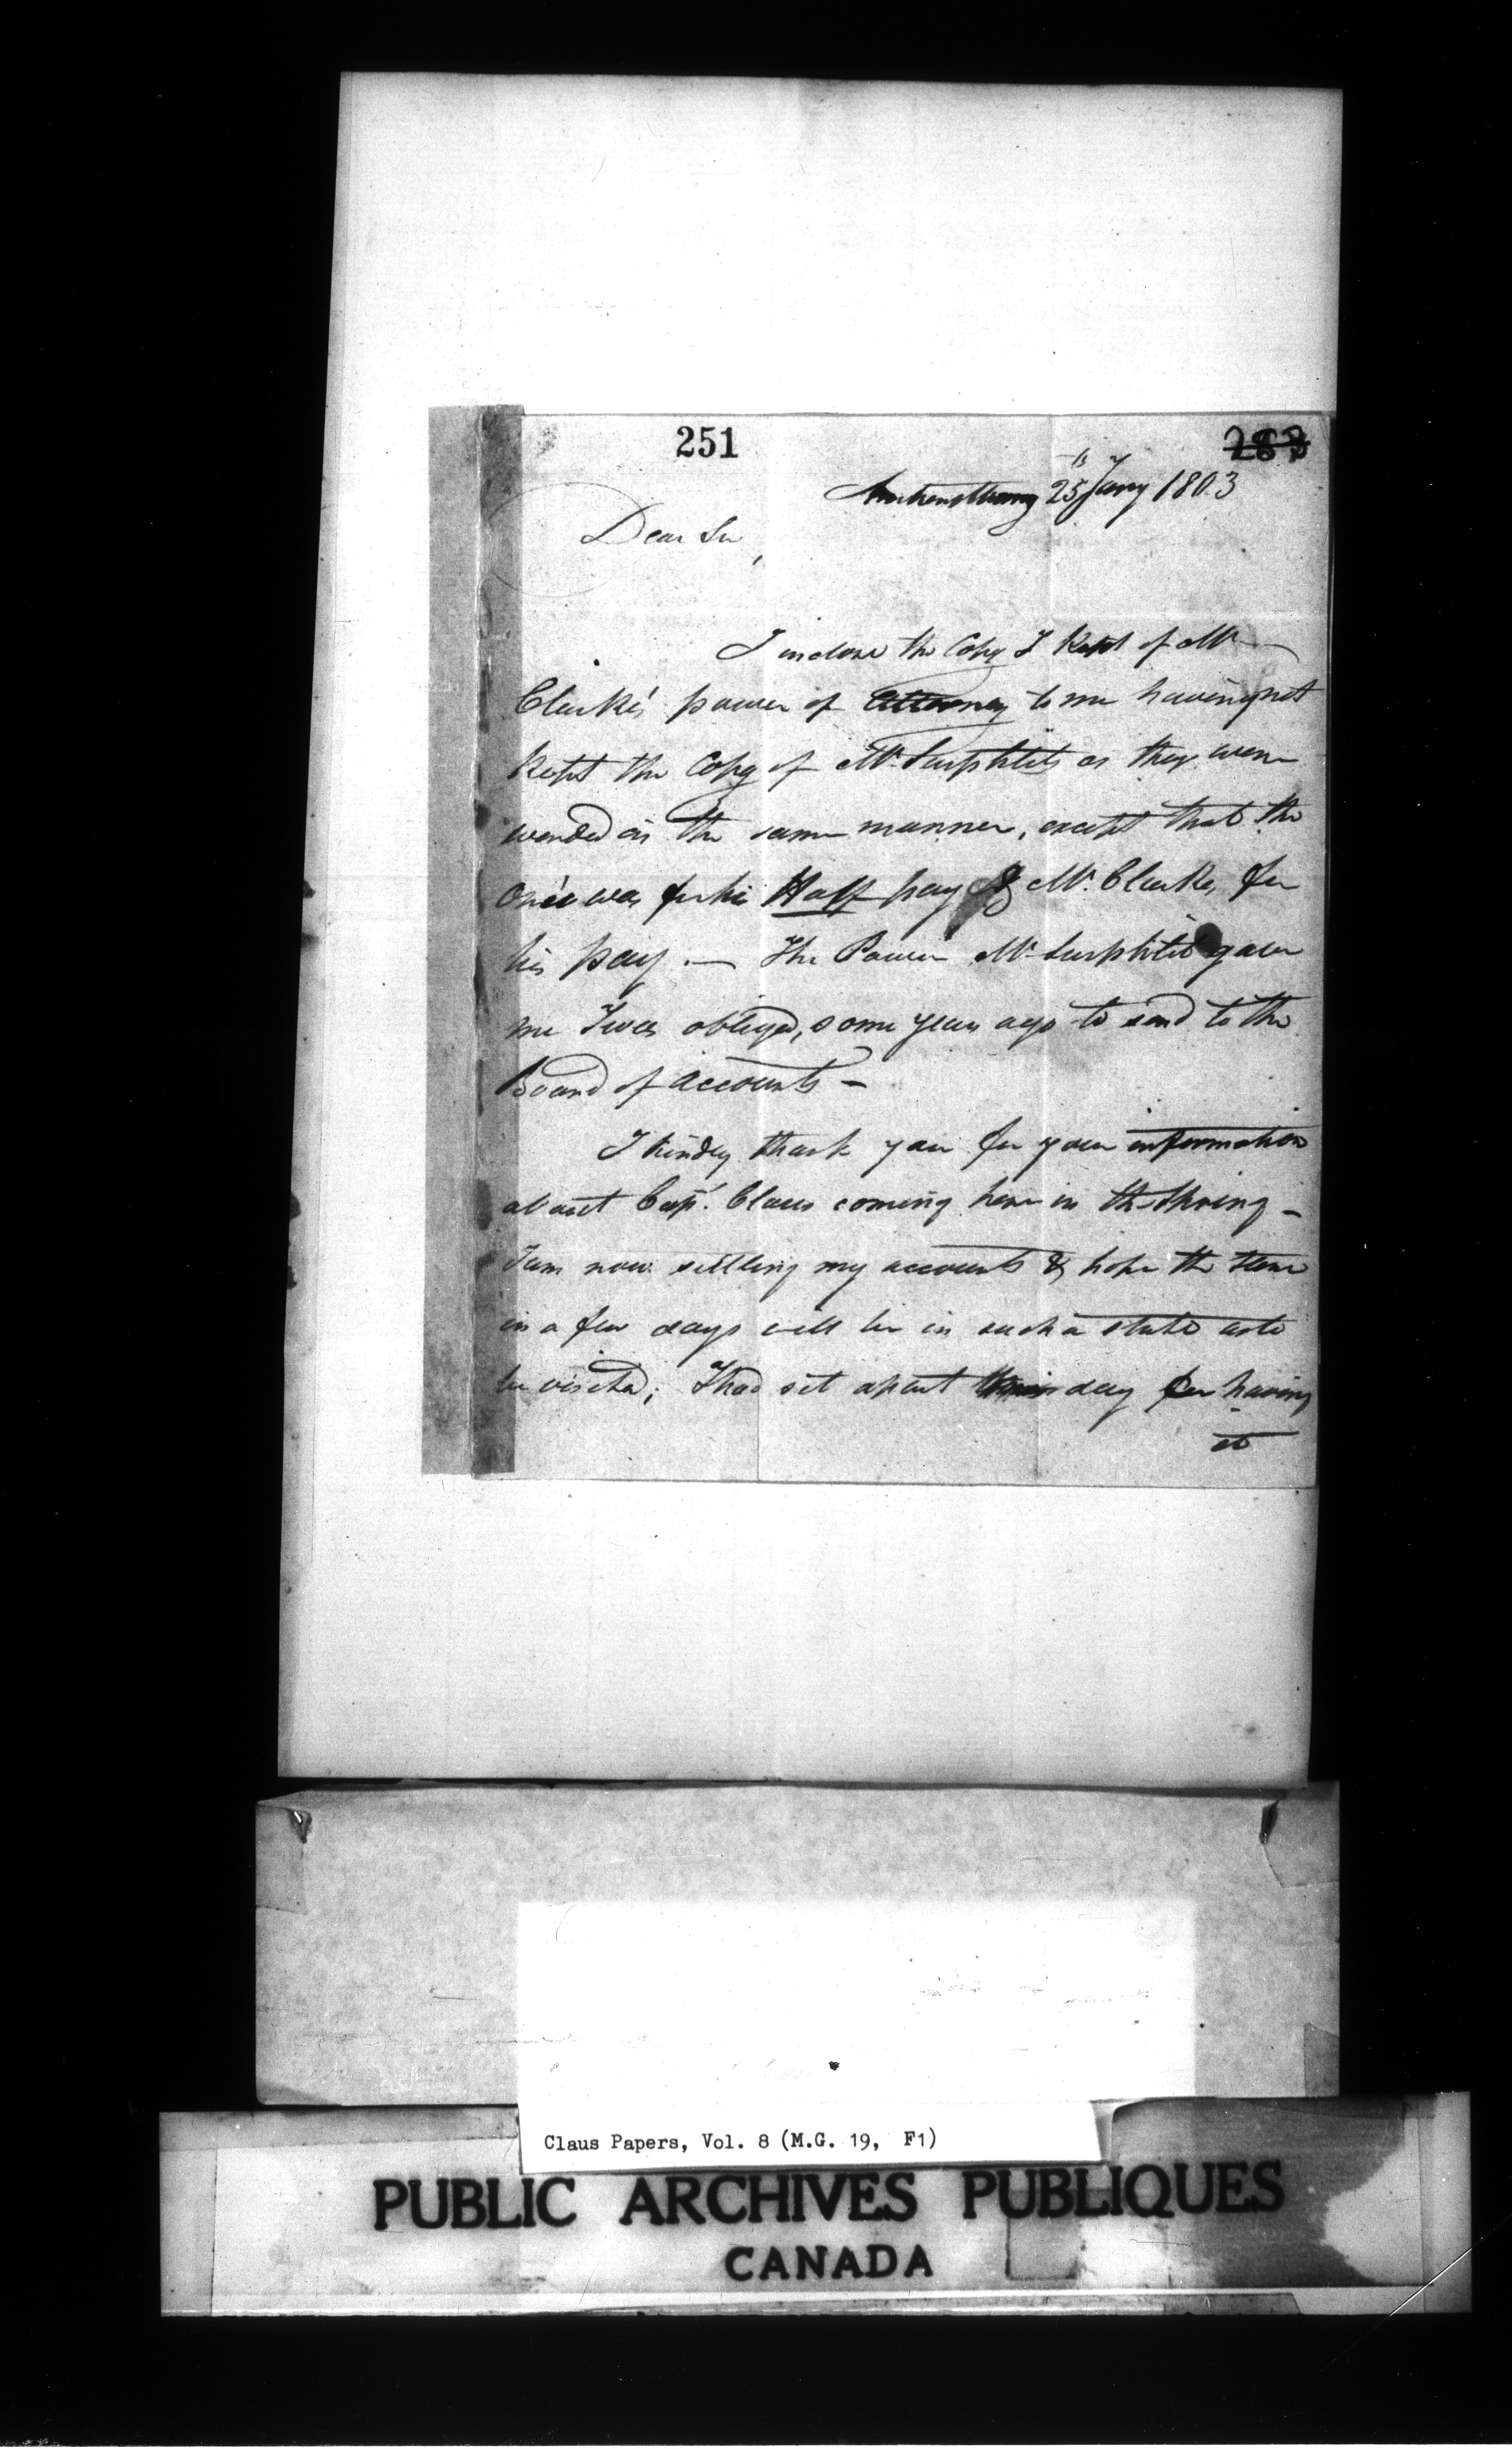 251
283
Amherstburg 25th Jany 1803
Dear Sir,
I inclose the Copy I Kept of Mr
Clarke's power of Attorney to me having not
Kept the Copy of Mr Surphlets as they were
worded in the same manner, except that the
one was for his Half pay & Mr. Clarke, for
his pay. — The Power Mr Surphlet gave
me I was obliged, some years ago to send to the
Board of Accounts -
I kindly thank you for your information
about Capt. Claus coming here in the Spring -
I am now settling my accounts & hope the Store
in a few days will be in such a state as to
be visited; I had set apart this day for having
it
Claus Papers, Vol. 8 (M.G. 19, F1)
PUBLIC ARCHIVES PUBLIQUES
CANADA